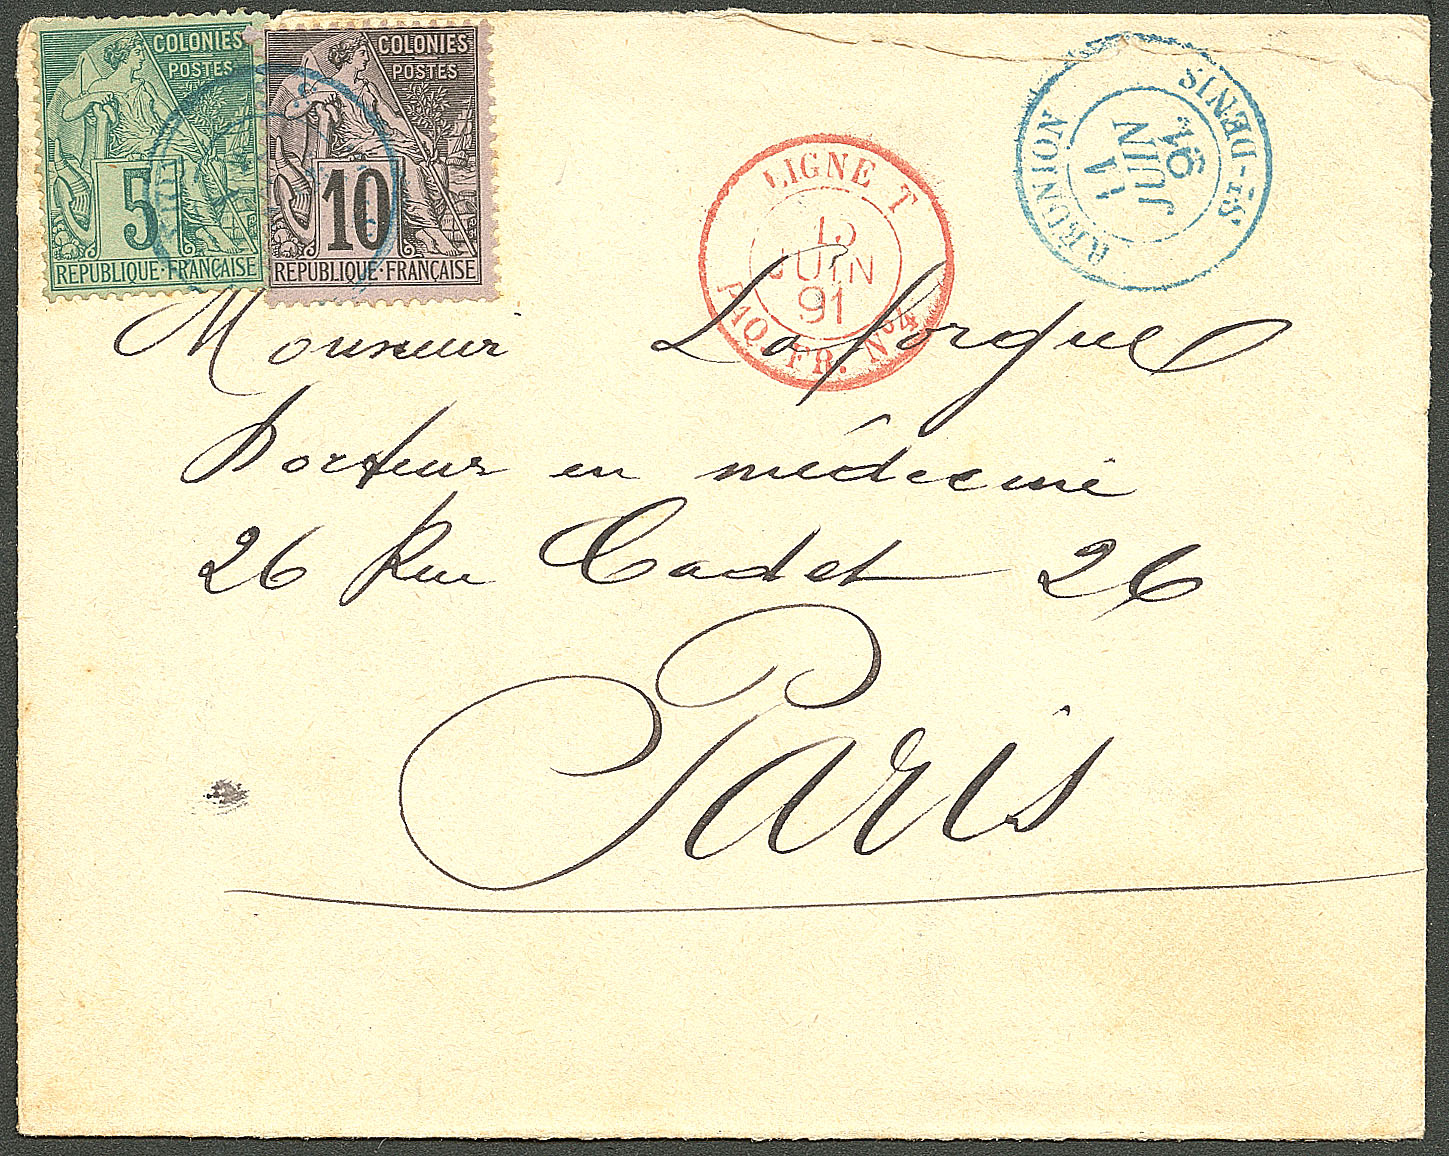 COLONIES
POSTES
5
REPUBLIQUE·FRANCAISE
COLONIES
POSTES
10
REPUBLIQUE·FRANCAISE
LIGNE T
15
JUIN
91
PAQ. FR. Nº4
RÉUNION
11
JUIN
91
ST-DENIS
Monsieur Laforgue
Docteur en médecine
26 Rue Cadet 26
Paris